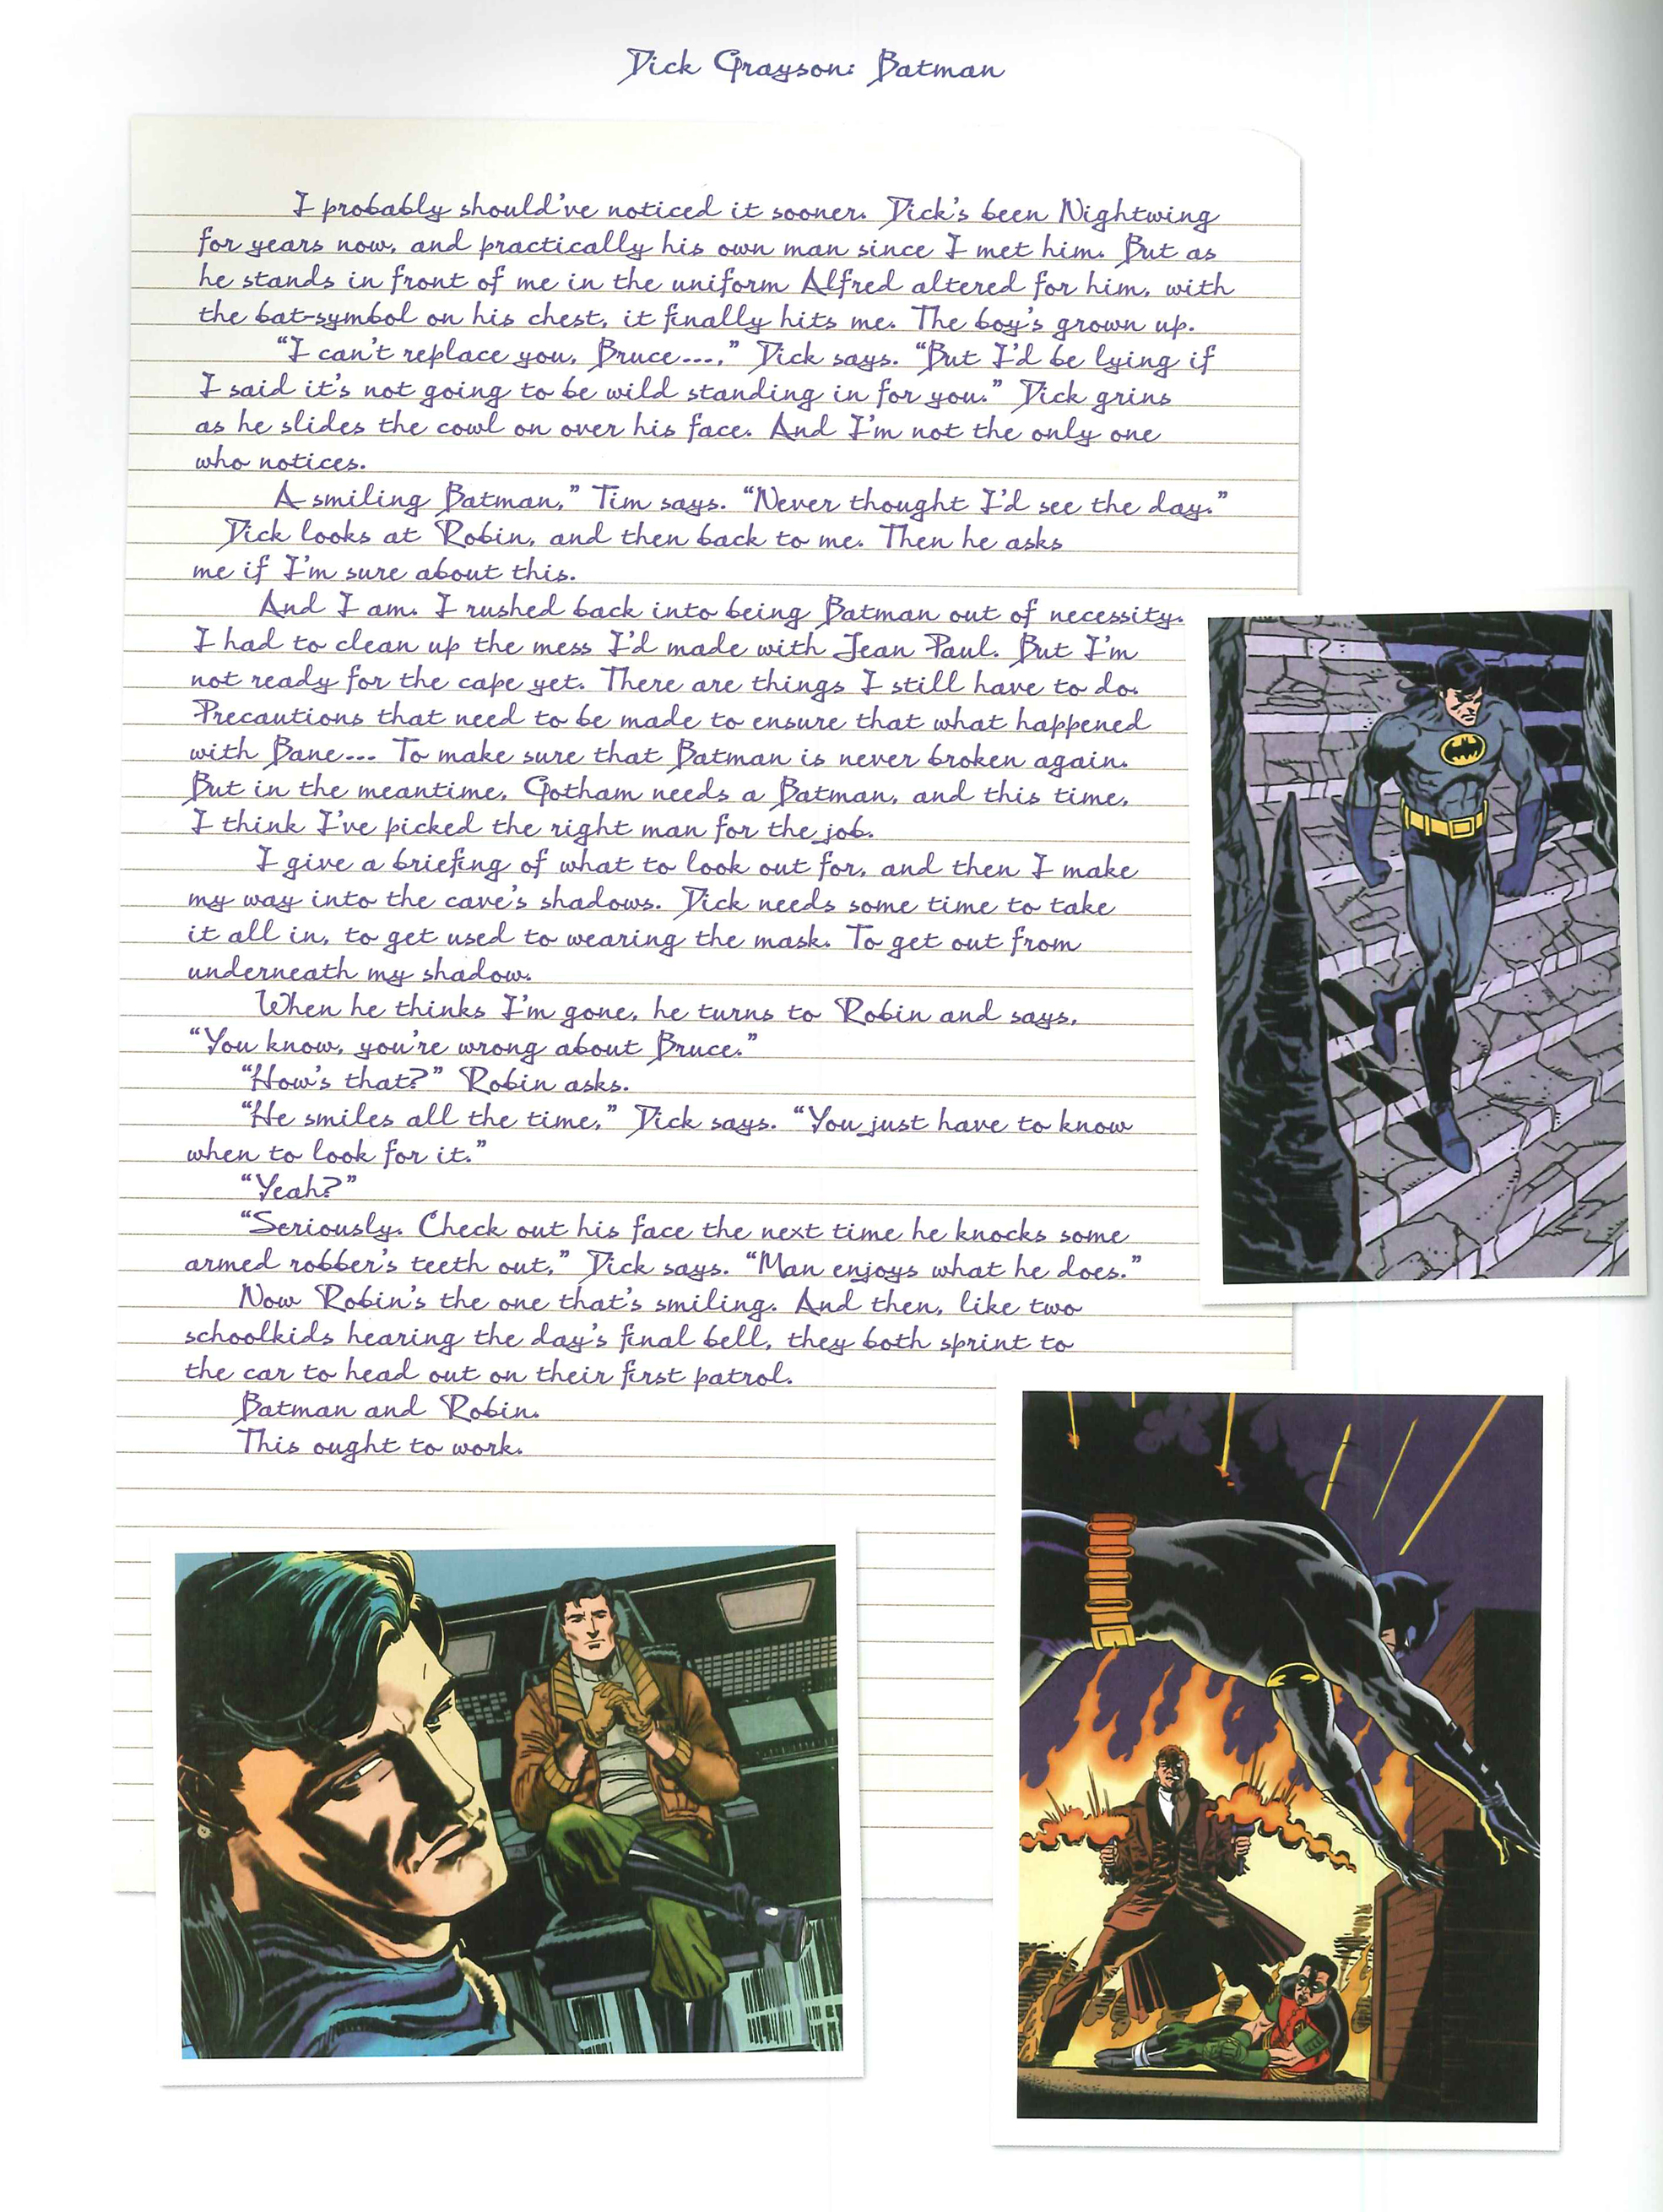 Dick Grayson: Batman
I probably should've noticed it sooner. Dick's been Nightwing
for years now, and practically his own man since I met him. But as
he stands in front of me in the uniform Alfred altered for him, with
the bat-symbol on his chest, it finally hits me. The boy's grown up.
"I can't replace you, Bruce...," Dick says. "But I'd be lying if
I said it's not going to be wild standing in for you." Dick grins
as he slides the cowl on over his face. And I'm not the only one
who notices.
A smiling Batman," Tim says. "Never thought I'd see the day."
Dick looks at Robin, and then back to me. Then he asks
me if I'm sure about this.
And I am. I rushed back into being Batman out of necessity.
I had to clean up the mess I'd made with Jean Paul. But I'm
not ready for the cape yet. There are things I still have to do.
Precautions that need to be made to ensure that what happened
with Bane... To make sure that Batman is never broken again.
But in the meantime, Gotham needs a Batman, and this time,
I think I've picked the right man for the job.
I give a briefing of what to look out for, and then I make
my way into the cave's shadows. Dick needs some time to take
it all in, to get used to wearing the mask. To get out from
underneath my shadow.
When he thinks I'm gone, he turns to Robin and says,
"You know, you're wrong about Bruce."
"How's that?" Robin asks.
"He smiles all the time," Dick says. "You just have to know
when to look for it."
"Yeah?"
"Seriously. Check out his face the next time he knocks some
armed robber's teeth out," Dick says. "Man enjoys what he does."
Now Robin's the one that's smiling. And then, like two
schoolkids hearing the day's final bell, they both sprint to
the car to head out on their first patrol.
Batman and Robin.
This ought to work.